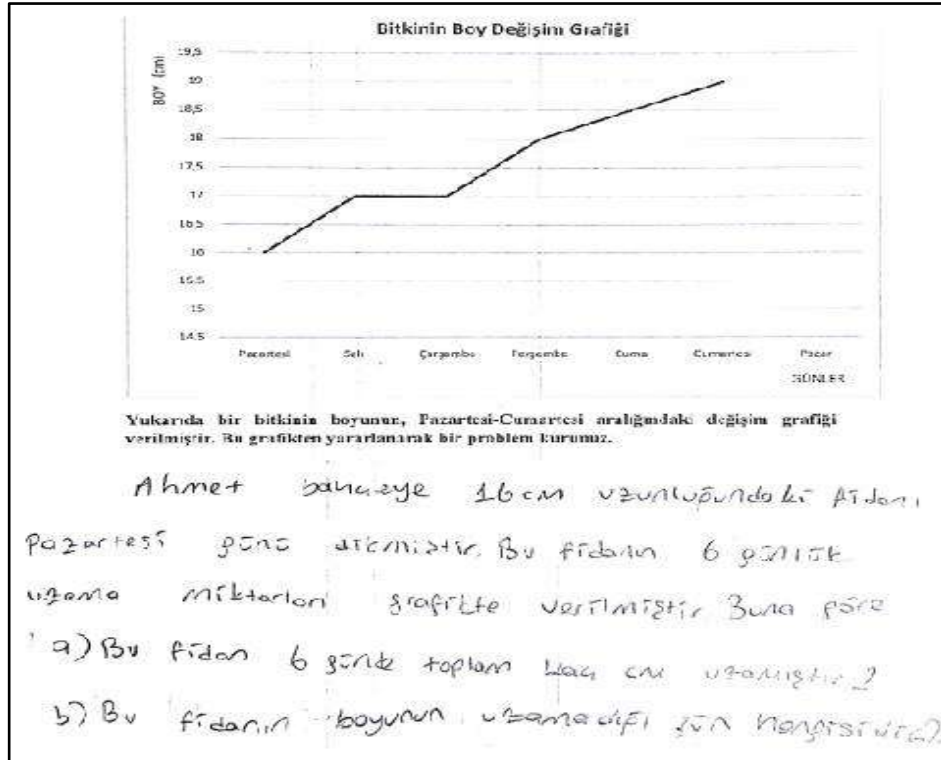 Bitkinin Boy Değişim Grafiği
BOY (cm)
19,5
19
18,5
18
17,5
17
16,5
16
15,5
15
14,5
Pazartesi Salı Çarşamba Perşembe Cuma Cumartesi Pazar
GÜNLER
Yukarıda bir bitkinin boyunun, Pazartesi-Cumartesi aralığındaki değişim grafiği
verilmiştir. Bu grafikten yararlanarak bir problem kurunuz.
Ahmet bahçeye 16 cm uzunluğundaki fidanı
pazartesi günü dikmiştir. Bu fidanın 6 günlük
uzama miktarları grafikte verilmiştir. Buna göre
a) Bu fidan 6 günde toplam kaç cm uzamıştır?
b) Bu fidanın boyunun uzamadığı gün hangisidir?